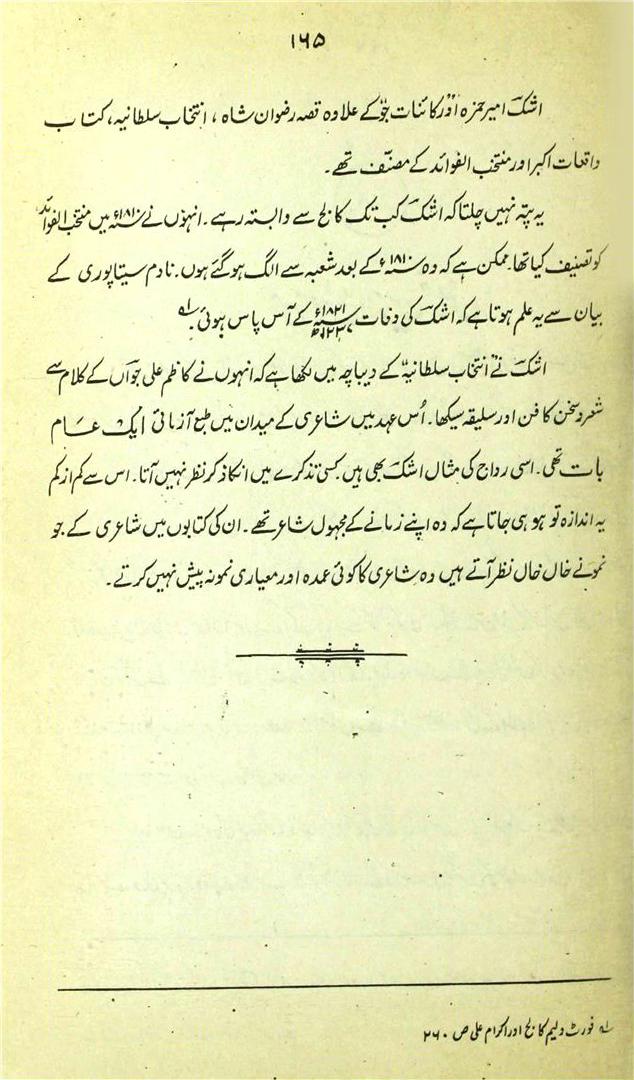 ۱۶۵
اشکؔ امیر حمزہ اور کائنات جوّ کے علاوہ قصہ رضوان شاہ، انتخاب سلطانیہ، کتاب
واقعات اکبر اور منتخب الفوائد کے مصنّف تھے۔
یہ پتہ نہیں چلتا کہ اشکؔ کب تک کالج سے وابستہ رہے۔ انہوں نے ۱۸۱۰ء میں منتخب الفوائد
کو تصنیف کیا تھا۔ ممکن ہے کہ وہ ۱۸۱۰ء کے بعد شعبہ سے الگ ہوگئے ہوں۔ نادم سیتاپوری کے
بیان سے یہ علم ہوتا ہے کہ اشکؔ کی وفات ۱۸۲۱ء کے آس پاس ہوئی۔ لہ
اشکؔ نے انتخاب سلطانیہ کے دیباچہ میں لکھا ہے کہ انہوں نے کاظم علی جوانؔ کے کلام سے
شعر و سخن کا فن اور سلیقہ سیکھا۔ اُس عہد میں شاعری کے میدان میں طبع آزمائی ایک عام
بات تھی۔ اسی رواج کی مثال اشکؔ بھی ہیں کسی تذکرے میں انکا ذکر نظر نہیں آتا۔ اس سے کم از کم
یہ اندازہ تو ہو ہی جاتا ہے کہ وہ اپنے زمانے کے مجہول شاعر تھے۔ ان کی کتابوں میں شاعری کے جو
نمونے خال خال نظر آتے ہیں وہ شاعری کا کوئی عمدہ اور معیاری نمونہ پیش نہیں کرتے۔
لہ فورٹ ولیم کالج اور اکرام علی ص ۲۶۰